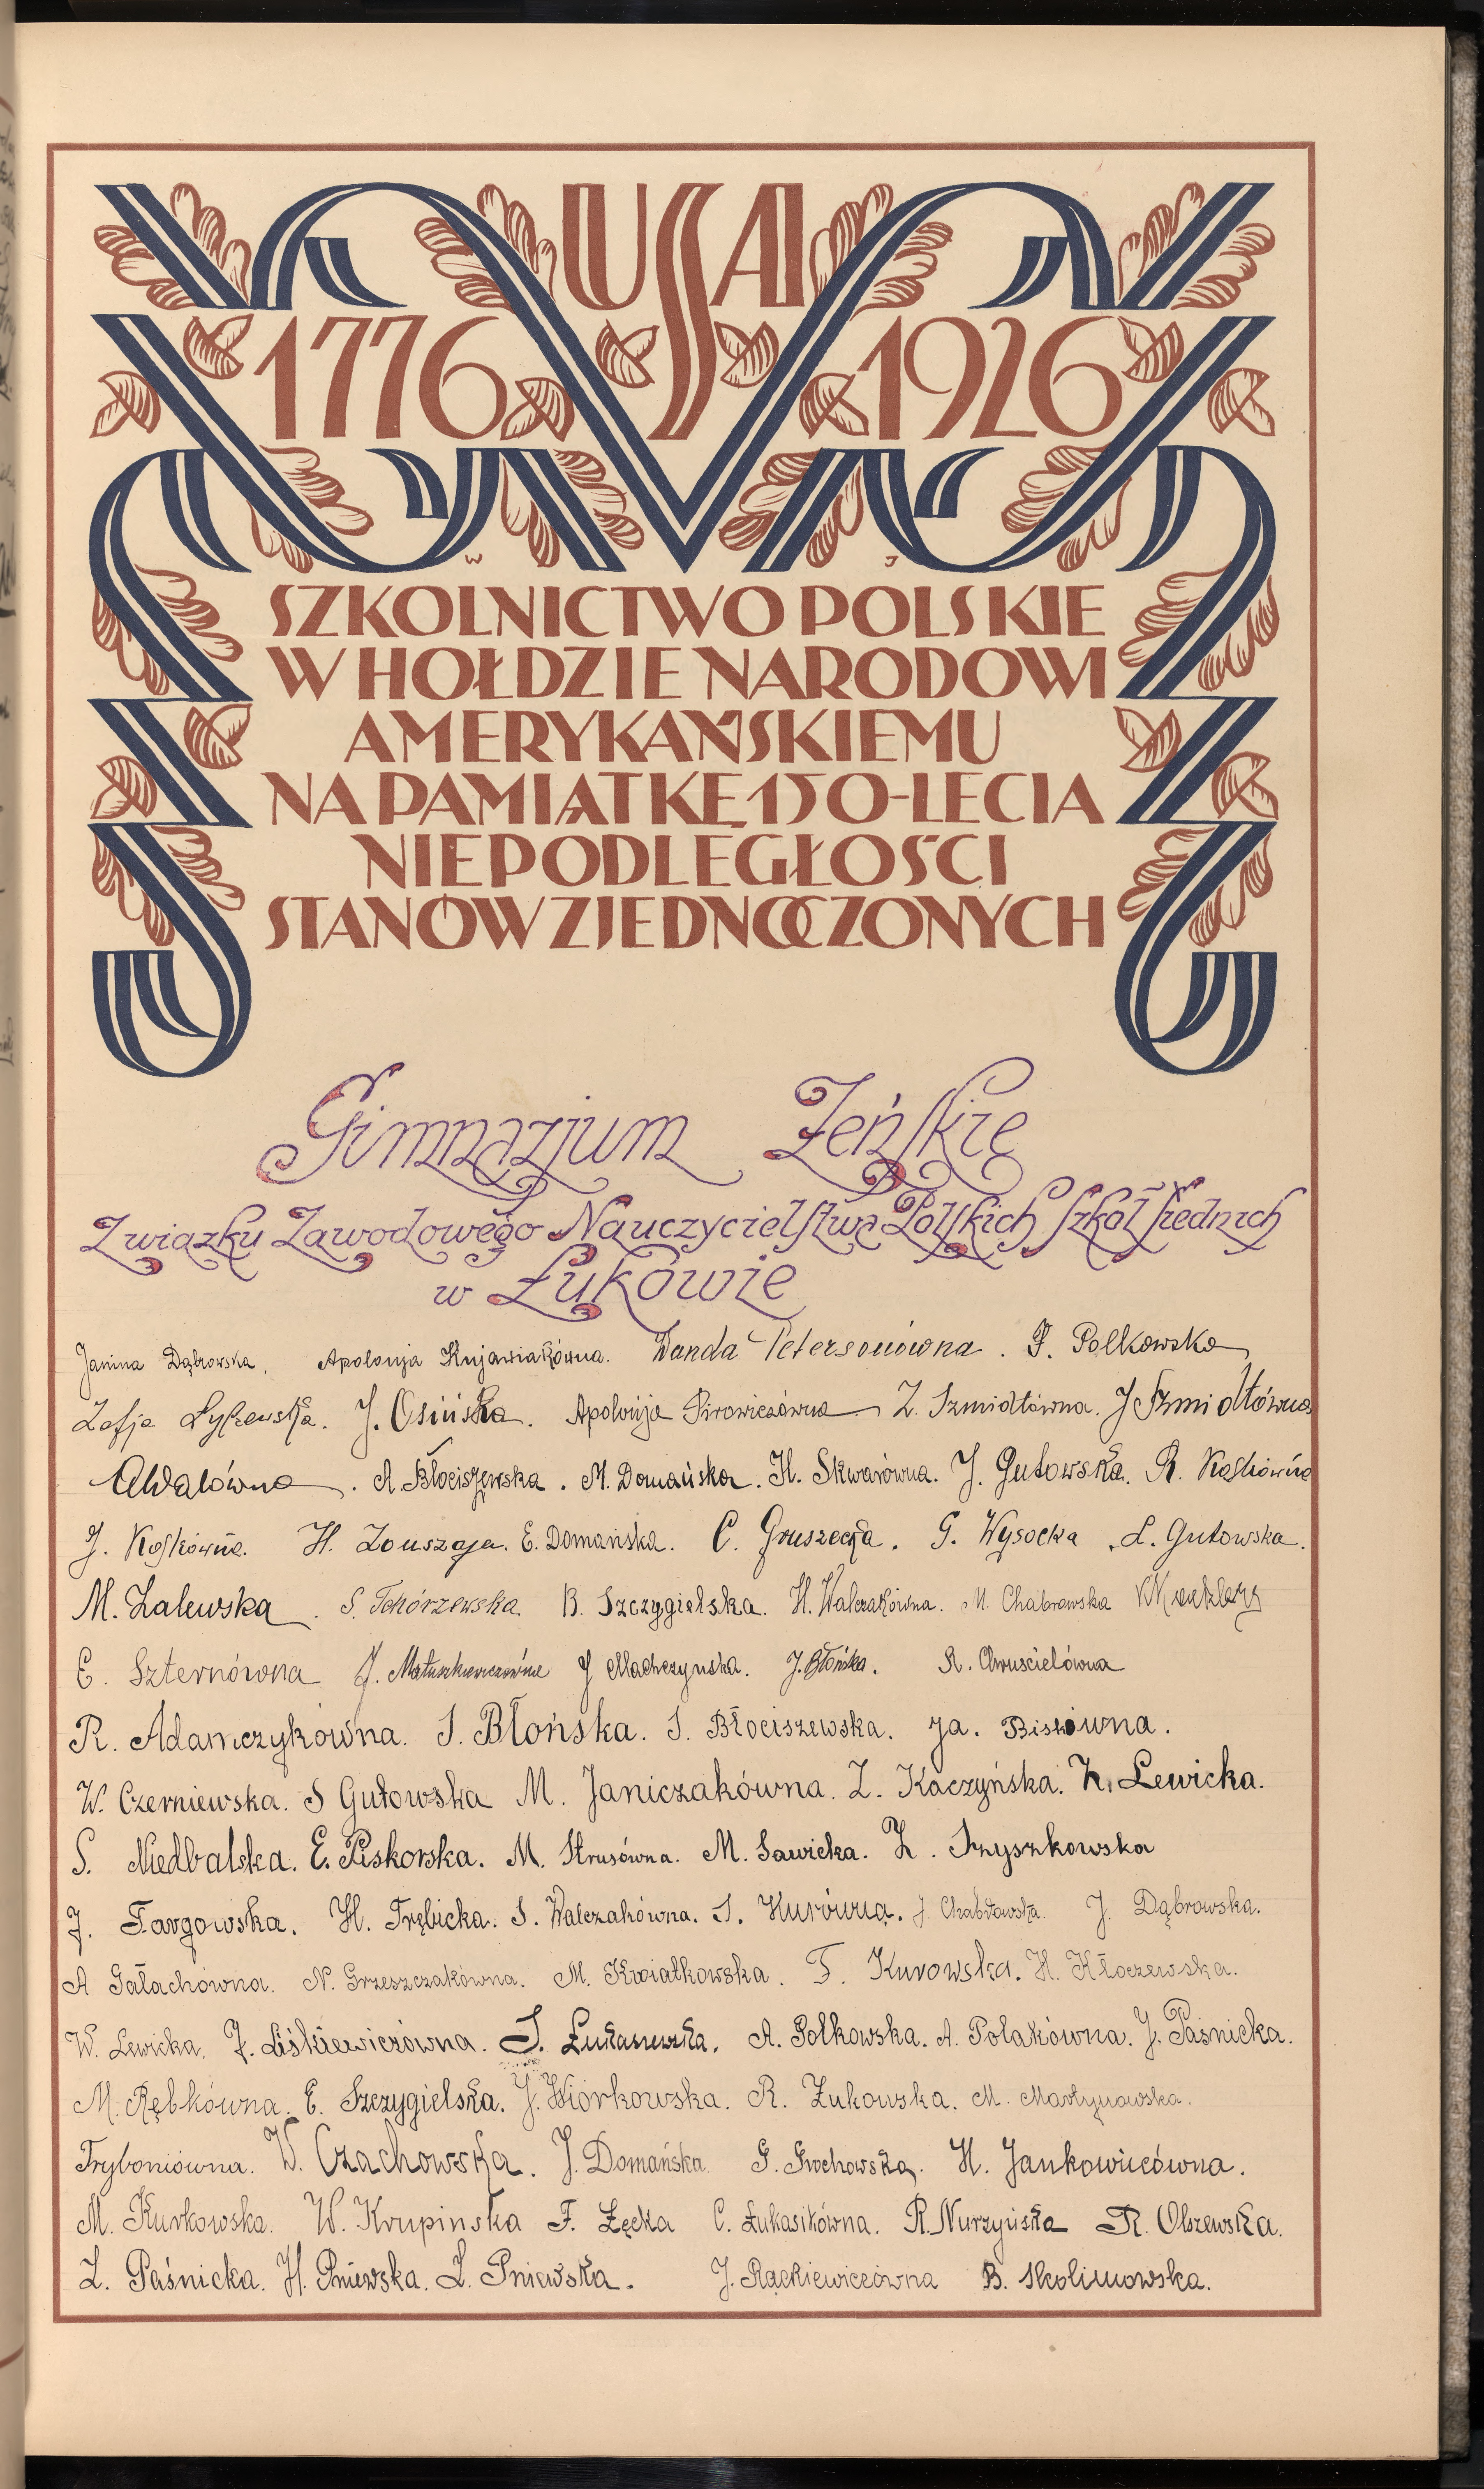 USA
1776 1926
W J
SZKOLNICTWO POLSKIE
W HOŁDZIE NARODOWI
AMERYKAŃSKIEMU
NA PAMIĄTKĘ 150-LECIA
NIEPODLEGŁOŚCI
STANÓW ZJEDNOCZONYCH
Gimnazjum Żeńskie
Związku Zawodowego Nauczycielstwa Polskich Szkół Średnich
w Łukowie
Janina Dąbrowska. Apolonja Kujawiakówna. Wanda Petersonówna. F. Polkowska
Zofja Łyżewska. J. Osińska. Apolonja Pirowiczówna Z. Szmidtówna. J Szmidtówna
A. Błociszewska. M. Domańska. H. Skwarówna. J. Gutowska. R. Kośkówna
J. Kośkówna. H. E. Domańska. C. Gruszecka. G. Wysocka. L. Gutowska.
M. Zalewska. S. Tchórzewska B. Szczygielska. H. Walczakówna. M. Chabrowska
E. Szternówna J. Matuszkiewiczówna J Machczyńska. J. Błońska. R. Chruścielówna
R. Adamczykówna. S. Błońska. S. Błociszewska. Ja.
W. Czerniewska. S Gutowska M. Janiczakówna. Z. Kaczyńska. K. Lewicka.
S. Niedbalska. E. Piskorska. M. Strusówna. M. Sawicka. Z. Szyszkowska
J. Targowska. H. Trębicka. S. Walczakówna. S. Kurówna. J. Chabrowska. J. Dąbrowska.
A Gałachówna. N. Grzeszczakówna. M. Kwiatkowska. F. Kurowska. H. Kłoczewska.
W. Lewicka. J. Liśkiewiczówna. S. Łukasiewska. A. Polkowska. A. Polakówna. J. Paśnicka.
M. Rębkówna. E. Szczygielska. J. Wiórkowska. R. Żukowska. M. Martynowska.
Tryboniówna. W. Czachowska. J. Domańska G. Grochowska. H. Jankowiczówna.
M. Kurkowska. W. Krupinska F. Łęcka C. Łukasikówna. R. Nurzyńska R. Olszewska.
Z. Paśnicka. H. Pniewska. L. Pniewska. J. Rackiewiczówna B. Skolimowska.